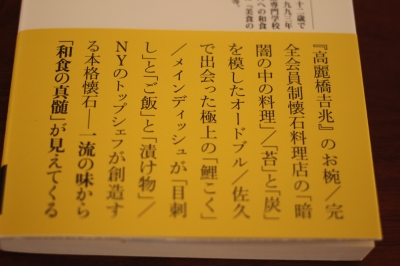 十二歳で
九九三年
専門学校
への和食
『高麗橋吉兆』のお椀／完
全会員制懐石料理店の「暗
闇の中の料理」／「苔」と「炭」
を模したオードブル／佐久
で出会った極上の「鯉こく」
／メインディッシュが「目刺
し」と「ご飯」と「漬け物」／
NYのトップシェフが創造す
る本格懐石――一流の味から
「和食の真髄」が見えてくる